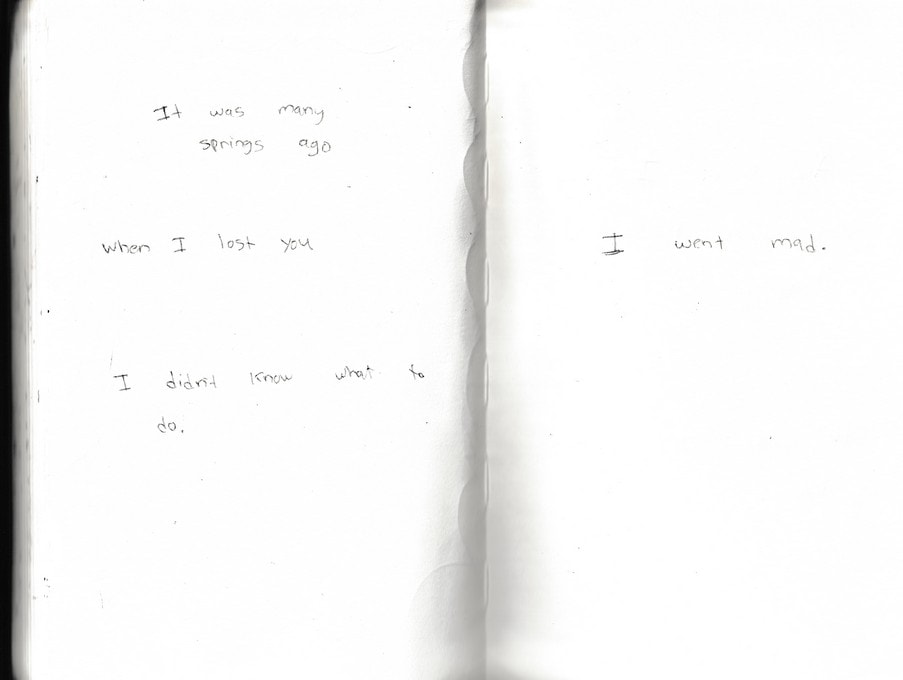 It was many
springs ago
when I lost you
I didn't know what to
do.
I went mad.